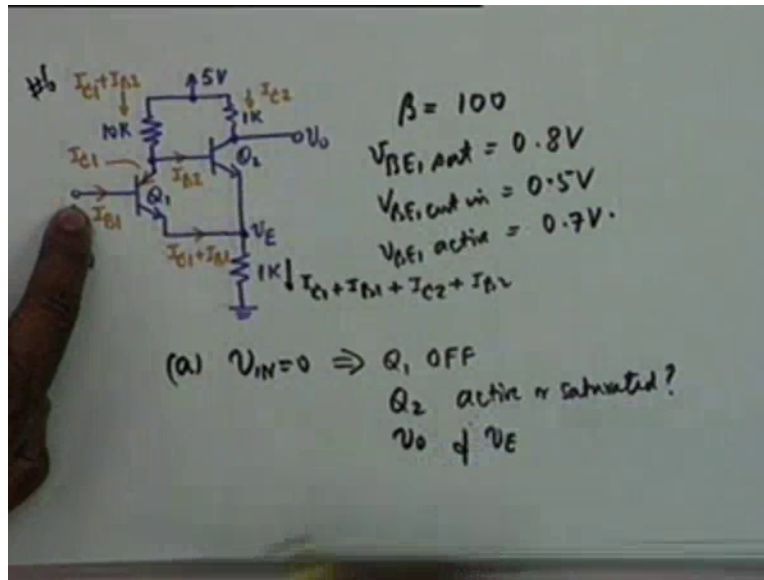 #6 I_C1+I_B2 5V I_C2
10K 1K V_o
I_C1 I_B2 Q_2
Q_1
I_B1 V_E
I_C1+I_B1 1K I_C1+I_B1+I_C2+I_B2
β = 100
V_BE, sat = 0.8V
V_BE, cut in = 0.5V
V_BE, active = 0.7V.
(a) V_IN=0 ⇒ Q_1 OFF
Q_2 active or saturated?
V_o & V_E